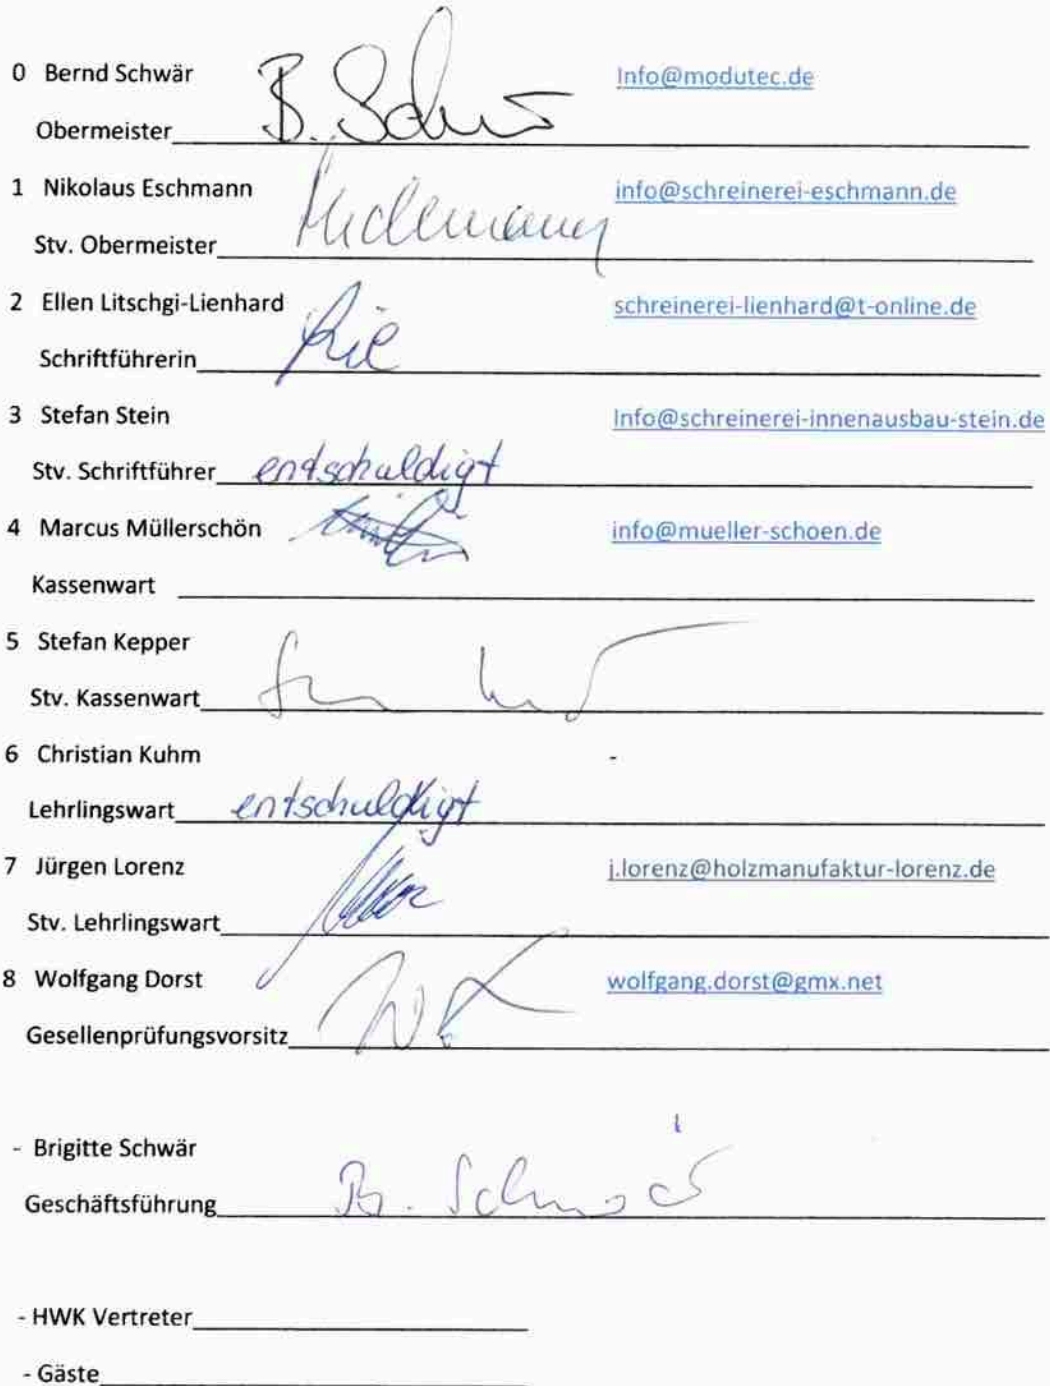 0 Bernd Schwär Info@modutec.de
Obermeister B. Schwär
1 Nikolaus Eschmann info@schreinerei-eschmann.de
Stv. Obermeister
2 Ellen Litschgi-Lienhard schreinerei-lienhard@t-online.de
Schriftführerin
3 Stefan Stein Info@schreinerei-innenausbau-stein.de
Stv. Schriftführer entschuldigt
4 Marcus Müllerschön info@mueller-schoen.de
Kassenwart
5 Stefan Kepper
Stv. Kassenwart
6 Christian Kuhm -
Lehrlingswart entschuldigt
7 Jürgen Lorenz j.lorenz@holzmanufaktur-lorenz.de
Stv. Lehrlingswart
8 Wolfgang Dorst wolfgang.dorst@gmx.net
Gesellenprüfungsvorsitz
- Brigitte Schwär
Geschäftsführung B. Schwär
- HWK Vertreter
- Gäste